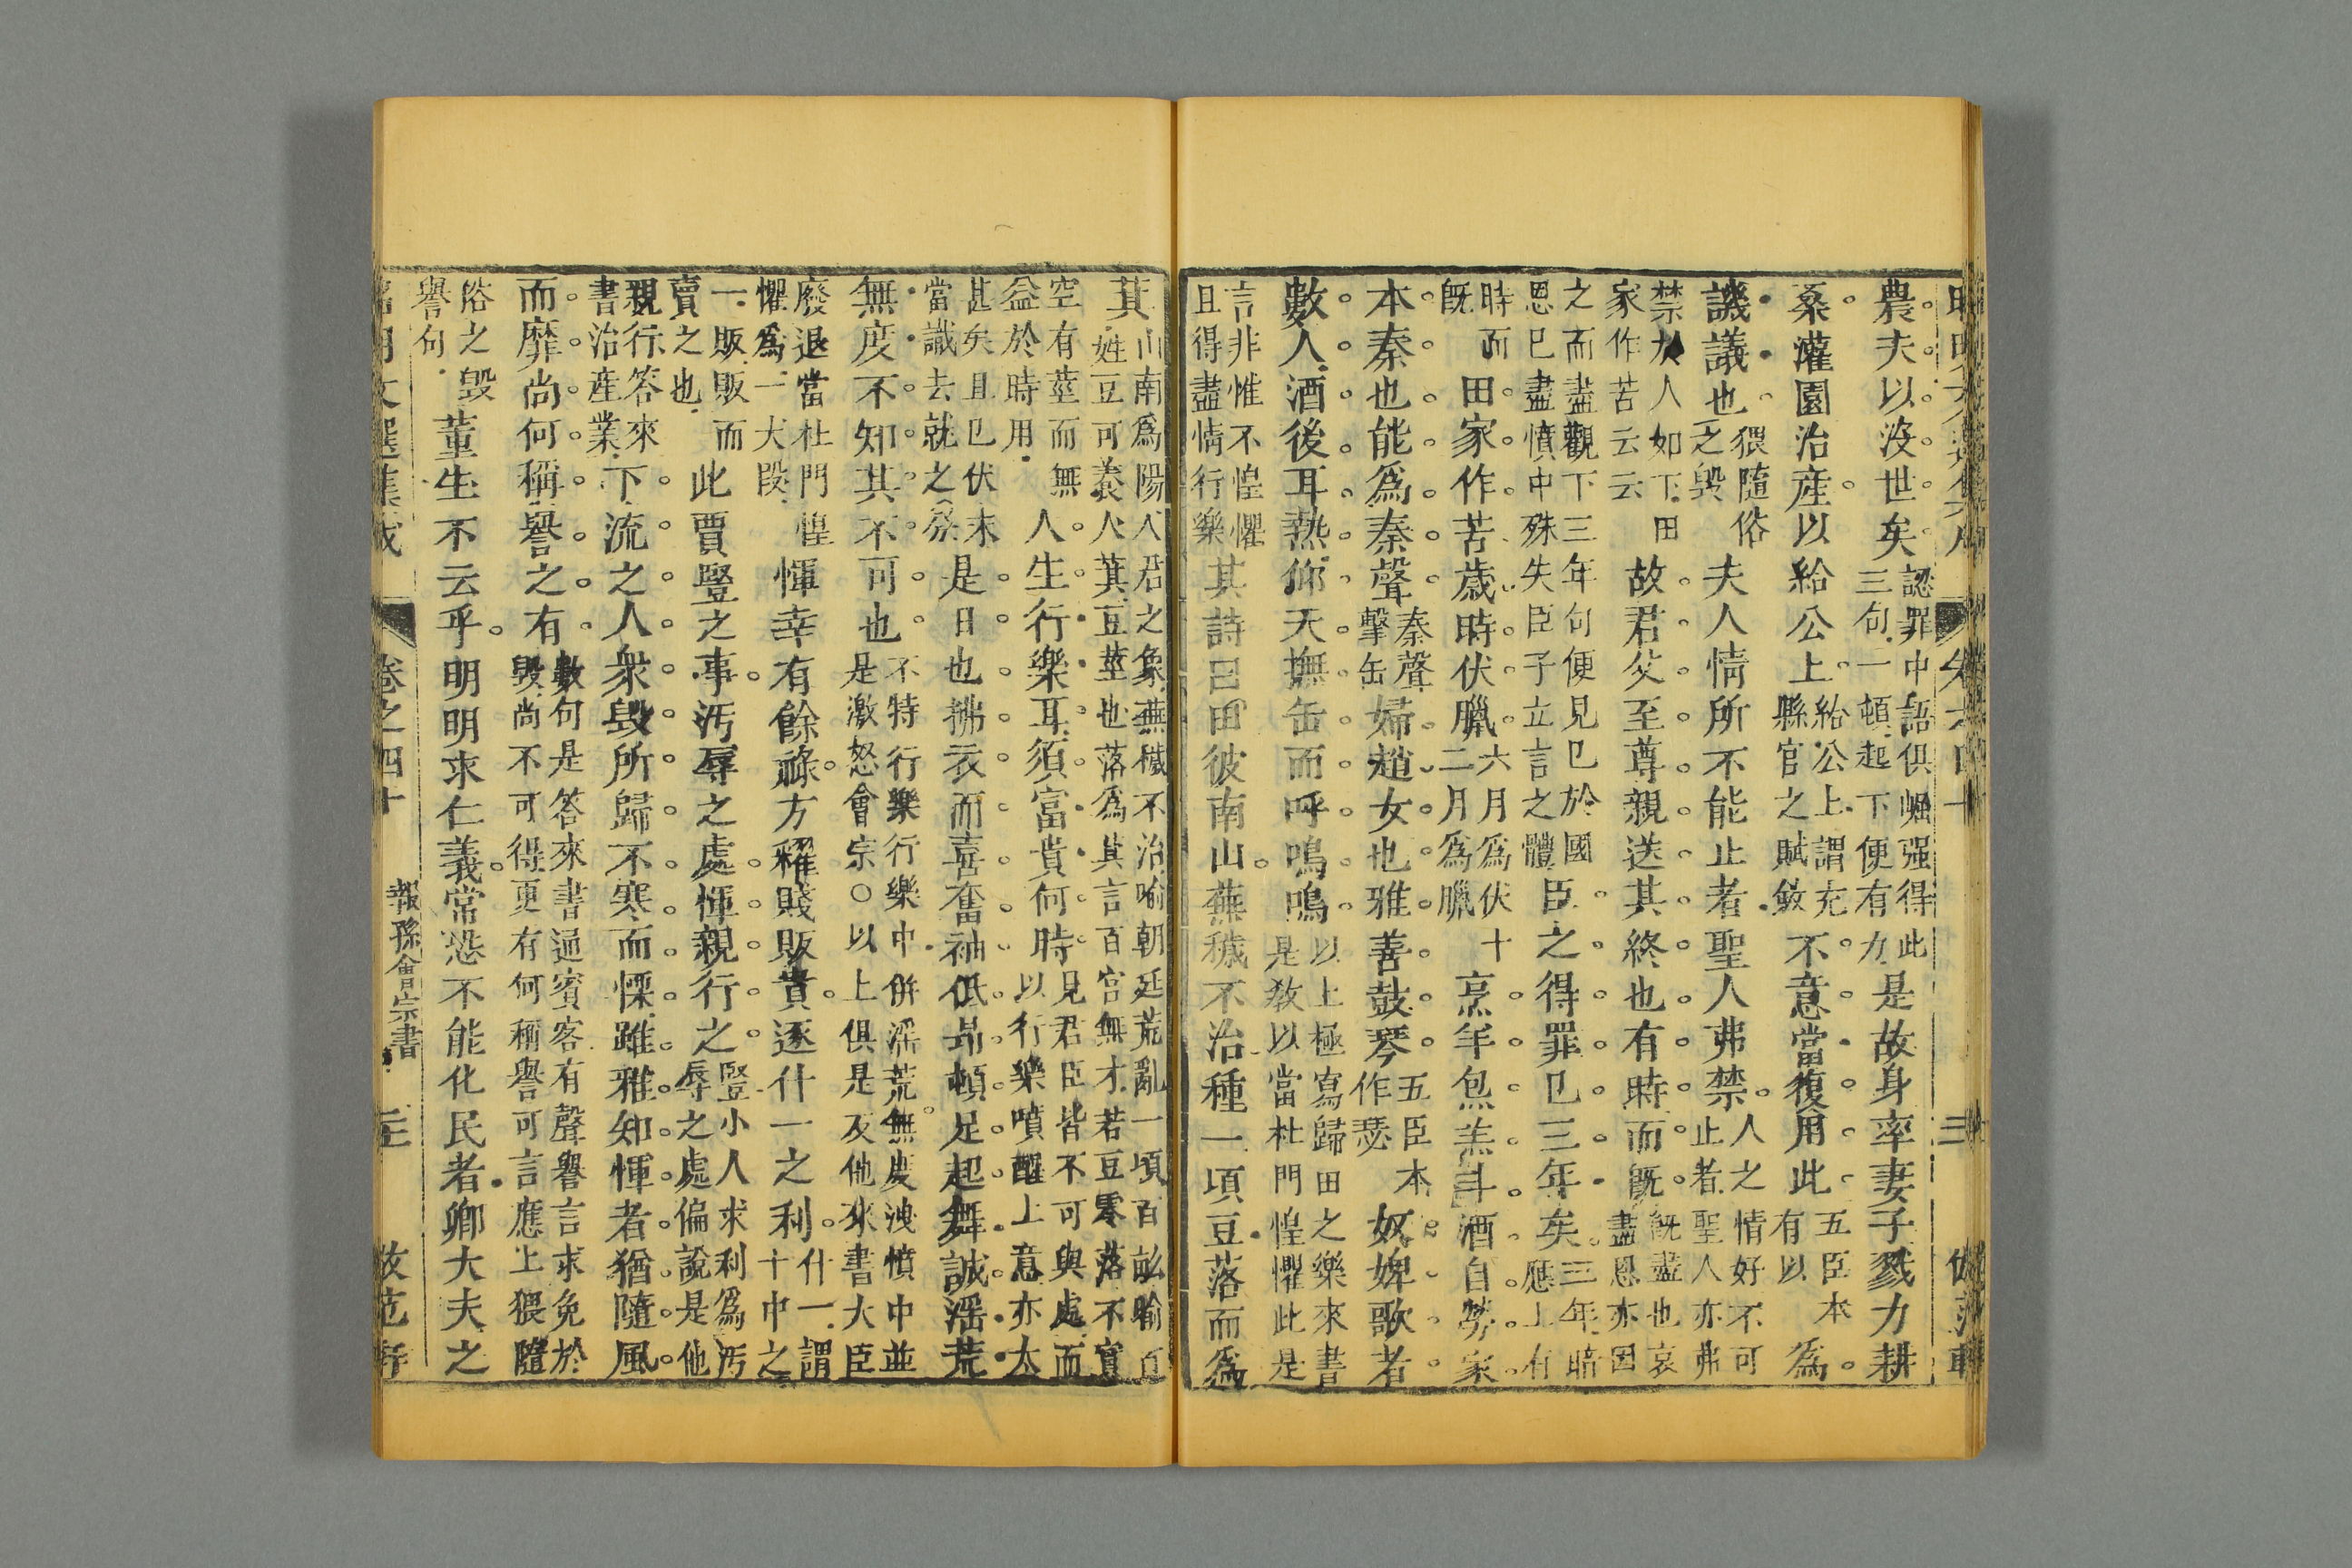 農夫以没世矣認罪中語俱崛强得此三句一頓起下便有力是故身率妻子戮力耕
桑灌園治產以給公上給公上謂充縣官之賦斂不意當復用此五臣本有以爲
譏議也猥隨俗之毀夫人情所不能止者聖人弗禁人之情好不可止者聖人亦弗
禁於人如下田家作苦云云故君父至尊親送其終也有時而旣旣盡也哀盡恩亦因
之而盡觀下三年句便見已於國恩已盡憤中殊失臣子立言之體臣之得罪已三年矣三年暗應上有
時而旣田家作苦歲時伏臘六月爲伏十二月爲臘烹羊炰羔斗酒自勞家
本秦也能爲秦聲秦聲擊缶婦趙女也雅善鼓琴五臣本作瑟奴婢歌者
數人酒後耳熱仰天撫缶而呼嗚嗚以上極寫歸田之樂來書是敎以當杜門惶懼此是
言非惟不惶懼且得盡情行樂其詩曰田彼南山蕪穢不治種一頃豆落而爲
萁山南爲陽人君之象蕪穢不治喻朝廷荒亂一頃百畝喻百姓豆可養人萁豆莖也落爲萁言百官無才若豆零落不實
空有莖而無益於時用人生行樂耳須富貴何時見君臣皆不可與處而以行樂噴醒上意亦太
甚矣且已伏末當識去就之案是日也拂衣而喜奮袖低昂頓足起舞誠淫荒
無度不知其不可也不特行樂行樂中併淫荒無度洩憤中並是激怒會宗○以上俱是反他來書大臣
廢退當杜門惶懼爲一大段惲幸有餘祿方糴賤販貴逐什一之利什一謂十中之
一販販而賣之也此賈豎之事汚辱之處惲親行之豎小人求利爲汚辱之處偏說是他
親行答來書治產業下流之人衆毀所歸不寒而慄雖雅知惲者猶隨風
而靡尚何稱譽之有數句是答來書通賓客有聲譽言求免於毀尚不可得更有何稱譽可言應上猥隨
俗之毀譽句董生不云乎明明求仁義常恐不能化民者卿大夫之
卷之四十 報孫會宗書